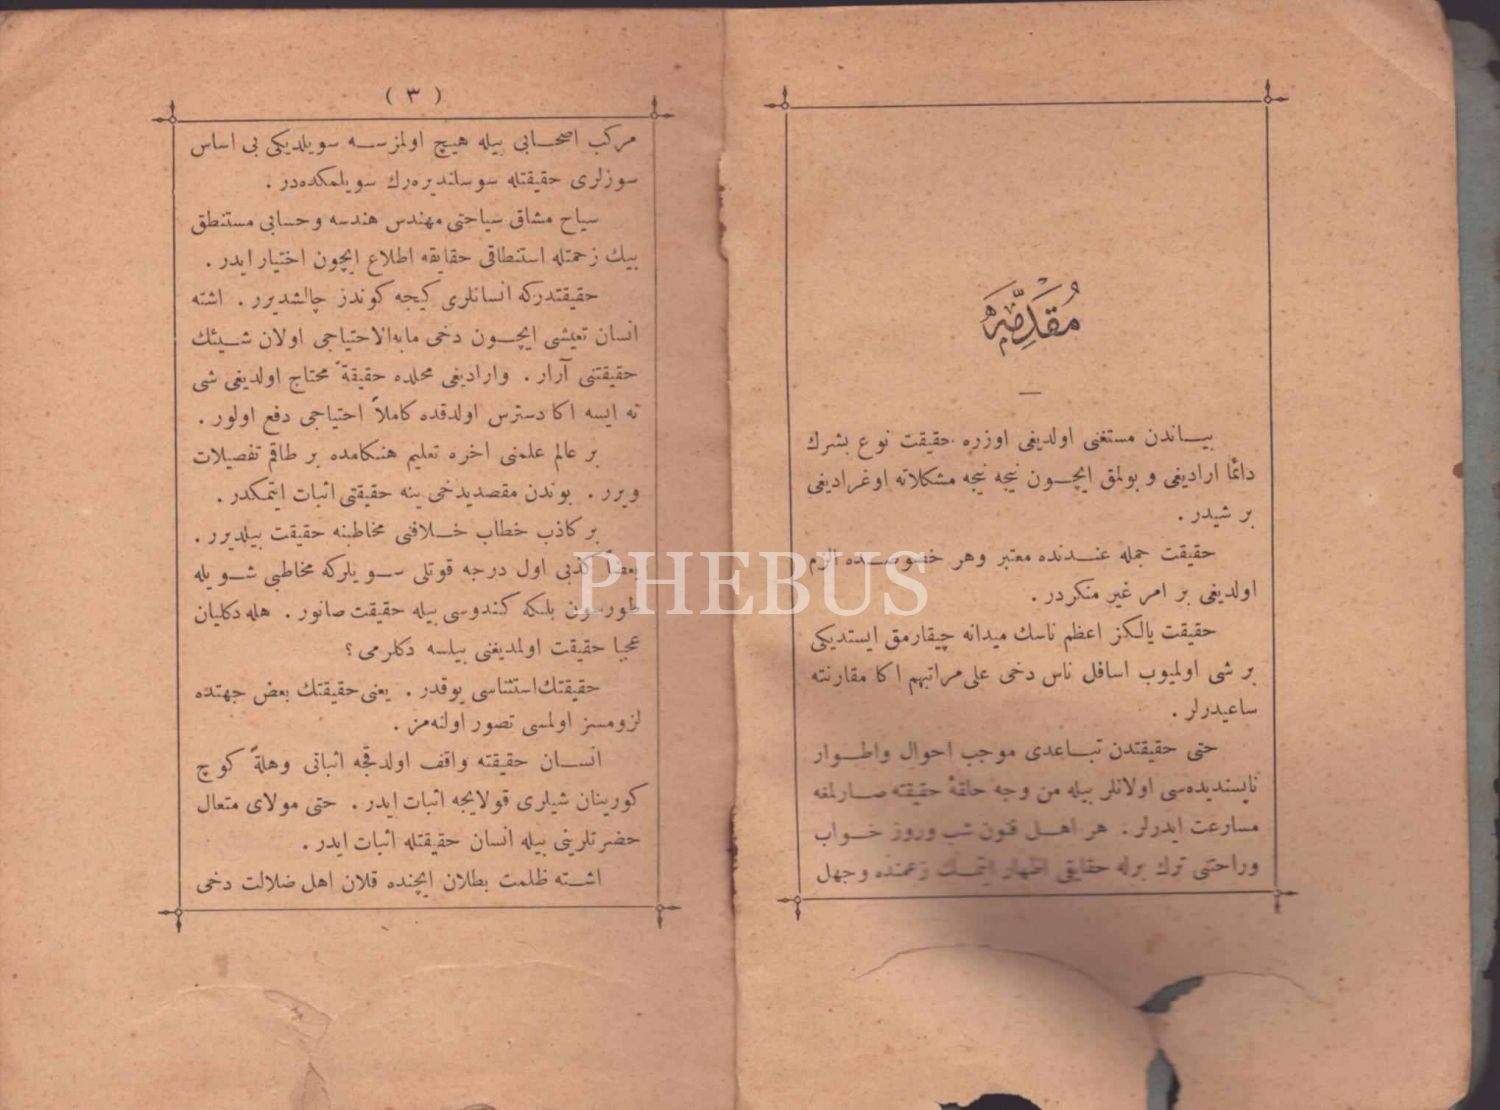 مُقَدِّمَه
بیـــاندن مستغنی اولدیغی اوزره حقیقت نوع بشرك
دائما ارادیغی و بولمق ایچـــون نیجه نیجه مشکلاته اوغرادیغی
بر شیدر .
حقیقت جمله عنـــدنده معتبر وهر خصوصـــده الزم
اولدیغی بر امر غیر منکردر .
حقیقت یالکز اعظم ناسك میدانه چیقارمق ایستدیکی
بر شی اولمیوب اسافل ناس دخی علی مراتبهم اکا مقارنته
ساعیدرلر .
حتی حقیقتدن تبـــاعدی موجب احوال واطـــوار
ناپسندیده‌سی اولانلر بیله من وجه حلقهٔ حقیقته صـــارلمغه
مسارعت ایدرلر . هر اهـــل فنون شب وروز خـــواب
وراحتنی ترك برله حقایقی اظهار ایتمـــك زعمنده وجهل
( ٣ )
مرکب اصحـــابی بیله هیچ اولمزســـه سویلدیکی بی اساس
سوزلری حقیقتله سوسلندیره‌رك سویلمکده‌در .
سیاح مشاق سیاحتی مهندس هندسه وحسابی مستنطق
بیك زحمتله استنطاقی حقایقه اطلاع ایچون اختیار ایدر .
حقیقتدرکه انسانلری کیجه کوندز چالشدیرر . اشته
انسان تعیشی ایچـــون دخی مابه‌الاحتیاجی اولان شـــیئك
حقیقتنی آرار . وارادیغی محلده حقیقةً محتاج اولدیغی شی
نه ایسه اکا دسترس اولدقده کاملاً احتیاجی دفع اولور .
بر عالم علمنی اخره تعلیم هنکامنده بر طاقم تفصیلات
ویرر . بوندن مقصدیدخی ینه حقیقتی اثبات ایتمکدر .
بر کاذب خطاب خـــلافنی مخاطبنه حقیقت بیلدیرر .
بعضاً کذبی اول درجه قوتلی ســـویلرکه مخاطبی شـــویله
طورسون بلکه کندوسی بیله حقیقت صانور . هله دکلیان
عجبا حقیقت اولمدیغنی بیلسه دکلرمی ؟
حقیقتك استثناسی یوقدر . یعنی حقیقتك بعض جهتده
لزومسز اولمسی تصور اولنه‌مز .
انســـان حقیقته واقف اولدقجه اثباتی وهلةً کوچ
کورینان شیلری قولایجه اثبات ایدر . حتی مولای متعال
حضرتلرینی بیله انسان حقیقتله اثبات ایدر .
اشـــته ظلمت بطلان ایچنده قلان اهل ضلالت دخی
PHEBUS